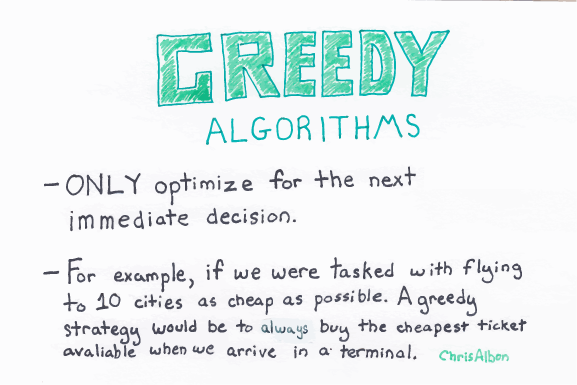 GREEDY
ALGORITHMS
- ONLY optimize for the next
immediate decision.
- For example, if we were tasked with flying
to 10 cities as cheap as possible. A greedy
strategy would be to always buy the cheapest ticket
avaliable when we arrive in a terminal. ChrisAlbon